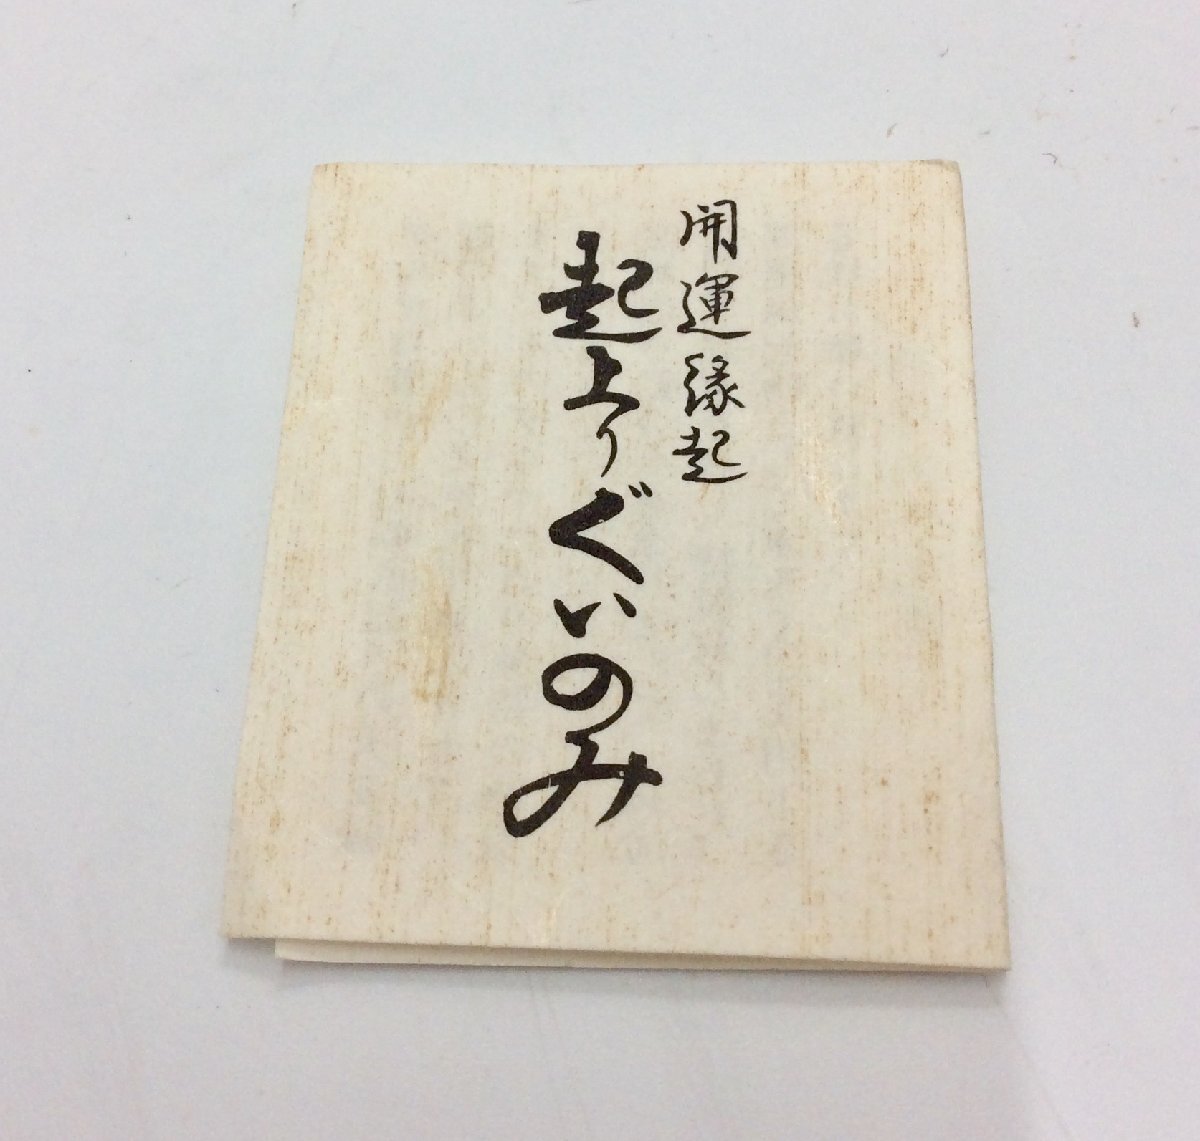 開運縁起
起上りぐいのみ